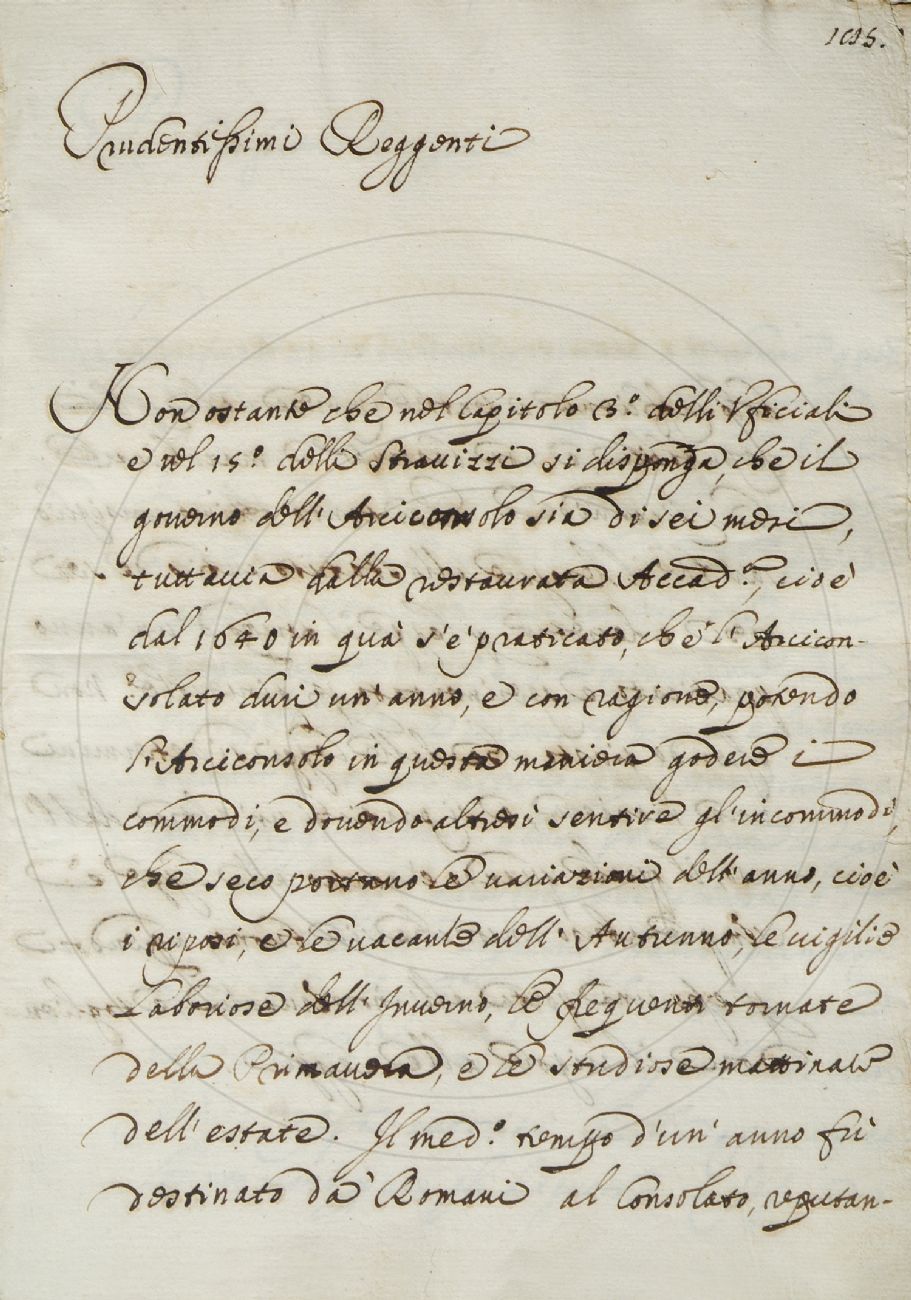 1015.
Prudentissimi Reggenti
Non ostante che nel Capitolo 3.° delli Vficiali
e nel 15.° delli Stravizzi si disponga, che il
governo dell' Arciconsolo sia di sei mesi,
tuttavia dalla restaurata Accad.ª, cioè
dal 1640 in quà s'è praticato, che l'Arcicon-
solato duri un' anno, e con ragione, potendo
l'Arciconsolo in questa maniera godere i
commodi, e dovendo altresì sentire gl'incommodi,
che seco portano le variazioni dell'anno, cioè
i riposi, e le vacanze dell' Autunno, le vigilie
laboriose dell' Inverno, le frequenti tornate
della Primavera, e le studiose mattinate
dell'estate. Il med.° tempo d'un' anno fù
destinato da' Romani al Consolato, reputan-